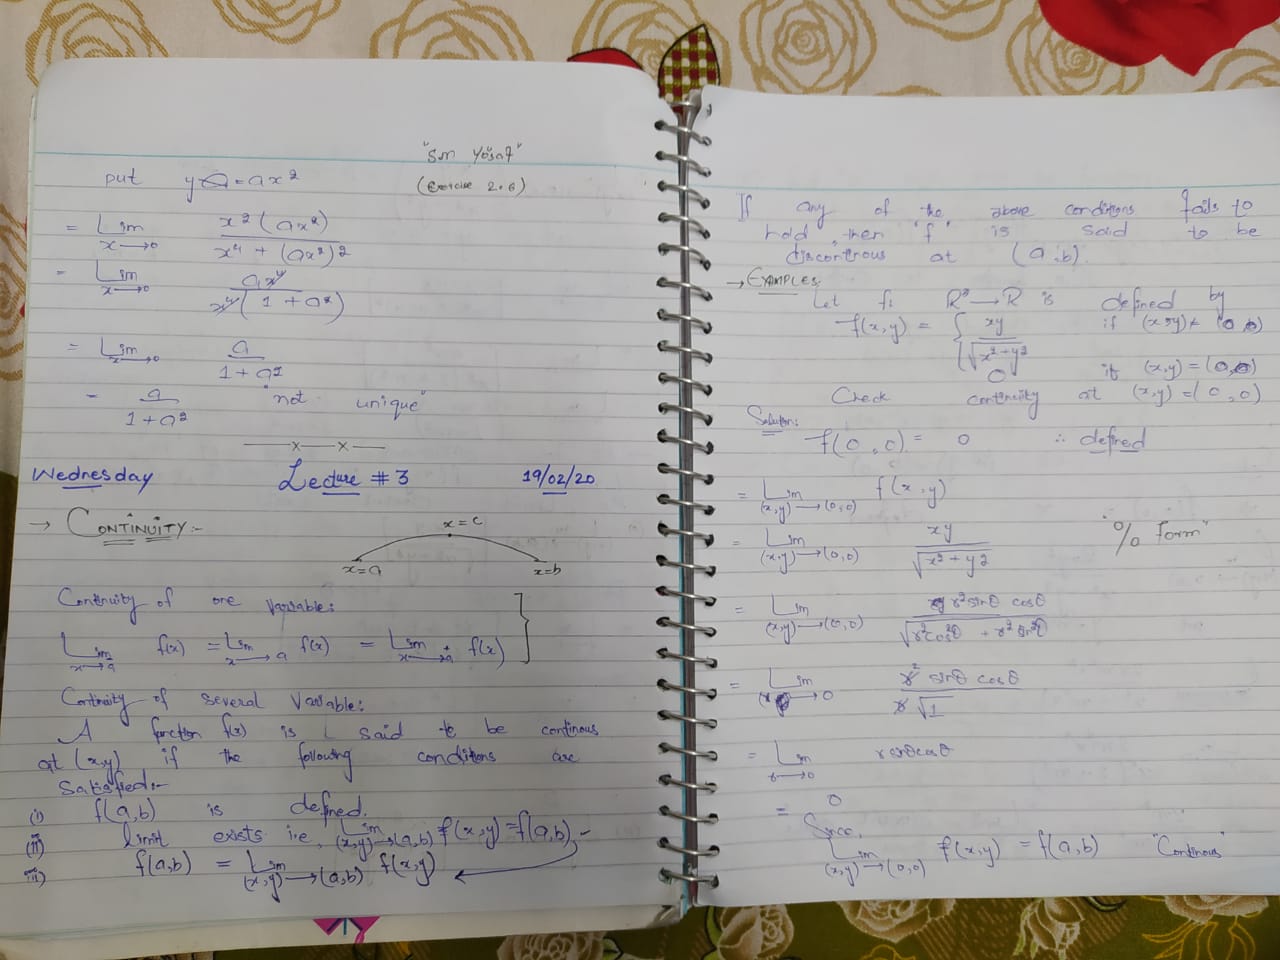 "Sm Yosaf"
(Exercise 2.6)
put y = ax²
= Lim x→0 x²(ax²) / x⁴ + (ax²)²
= Lim x→0 ax⁴ / x⁴(1 + a²)
= Lim x→0 a / 1 + a²
= a / 1 + a² "not unique"
—x—x—
Wednesday Lecture # 3 19/02/20
→ CONTINUITY:-
x=c
x=a x=b
Continuity of one Variable:
Lim x→a⁻ f(x) = Lim x→a f(x) = Lim x→a⁺ f(x)
Continuity of Several Variable:
A function f(x) is said to be continous
at (x,y) if the following conditions are
Satisfied:-
(i) f(a,b) is defined.
(ii) limit exists i.e, Lim (x,y)→(a,b) f(x,y) = f(a,b)
(iii) f(a,b) = Lim (x,y)→(a,b) f(x,y)
If any of the above conditions fails to
hold, then "f" is said to be
discontinous at (a,b).
→ EXAMPLES:
Let f: R²→R is defined by
f(x,y) = { xy / √x²+y² if (x,y)≠(0,0)
0 if (x,y)=(0,0)
Check continuity at (x,y)=(0,0)
Solution:
f(0,0) = 0 ∴ defined
= Lim (x,y)→(0,0) f(x,y)
= Lim (x,y)→(0,0) xy / √x²+y² "0/0 form"
= Lim (x,y)→(0,0) r²sinθ cosθ / √r²cos²θ + r²sin²θ
= Lim →0 r² sinθ cosθ / r √1
= Lim r→0 r sinθcosθ
= 0
Since,
Lim (x,y)→(0,0) f(x,y) = f(a,b) "Continous"